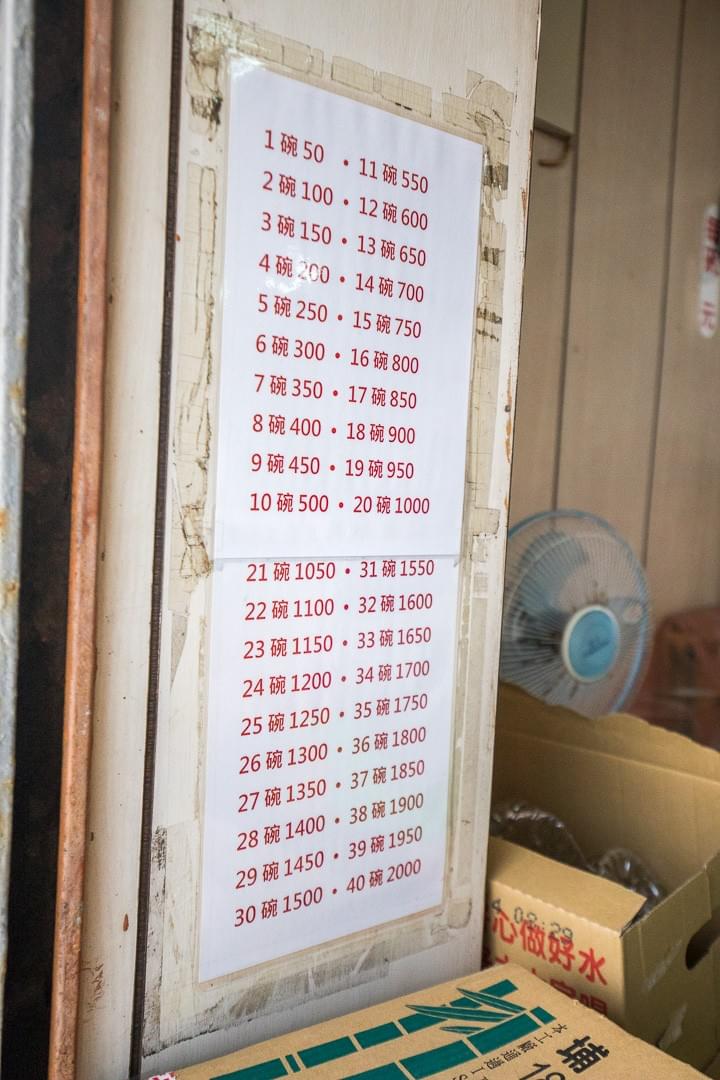 1 碗 50 • 11 碗 550
2 碗 100 • 12 碗 600
3 碗 150 • 13 碗 650
4 碗 200 • 14 碗 700
5 碗 250 • 15 碗 750
6 碗 300 • 16 碗 800
7 碗 350 • 17 碗 850
8 碗 400 • 18 碗 900
9 碗 450 • 19 碗 950
10 碗 500 • 20 碗 1000
21 碗 1050 • 31 碗 1550
22 碗 1100 • 32 碗 1600
23 碗 1150 • 33 碗 1650
24 碗 1200 • 34 碗 1700
25 碗 1250 • 35 碗 1750
26 碗 1300 • 36 碗 1800
27 碗 1350 • 37 碗 1850
28 碗 1400 • 38 碗 1900
29 碗 1450 • 39 碗 1950
30 碗 1500 • 40 碗 2000
心做好水
埔